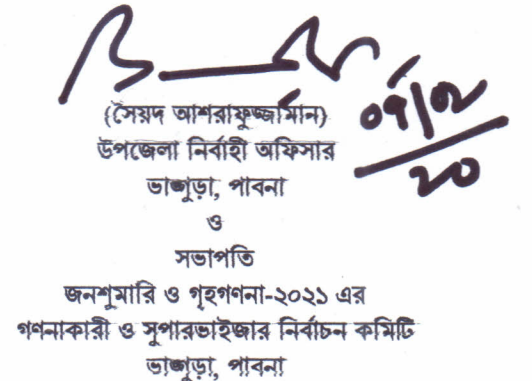 (সৈয়দ আশরাফুজ্জামান)
০৭/০৭/২০
উপজেলা নির্বাহী অফিসার
ভাঙ্গুড়া, পাবনা
ও
সভাপতি
জনশুমারি ও গৃহগণনা-২০২১ এর
গণনাকারী ও সুপারভাইজার নির্বাচন কমিটি
ভাঙ্গুড়া, পাবনা